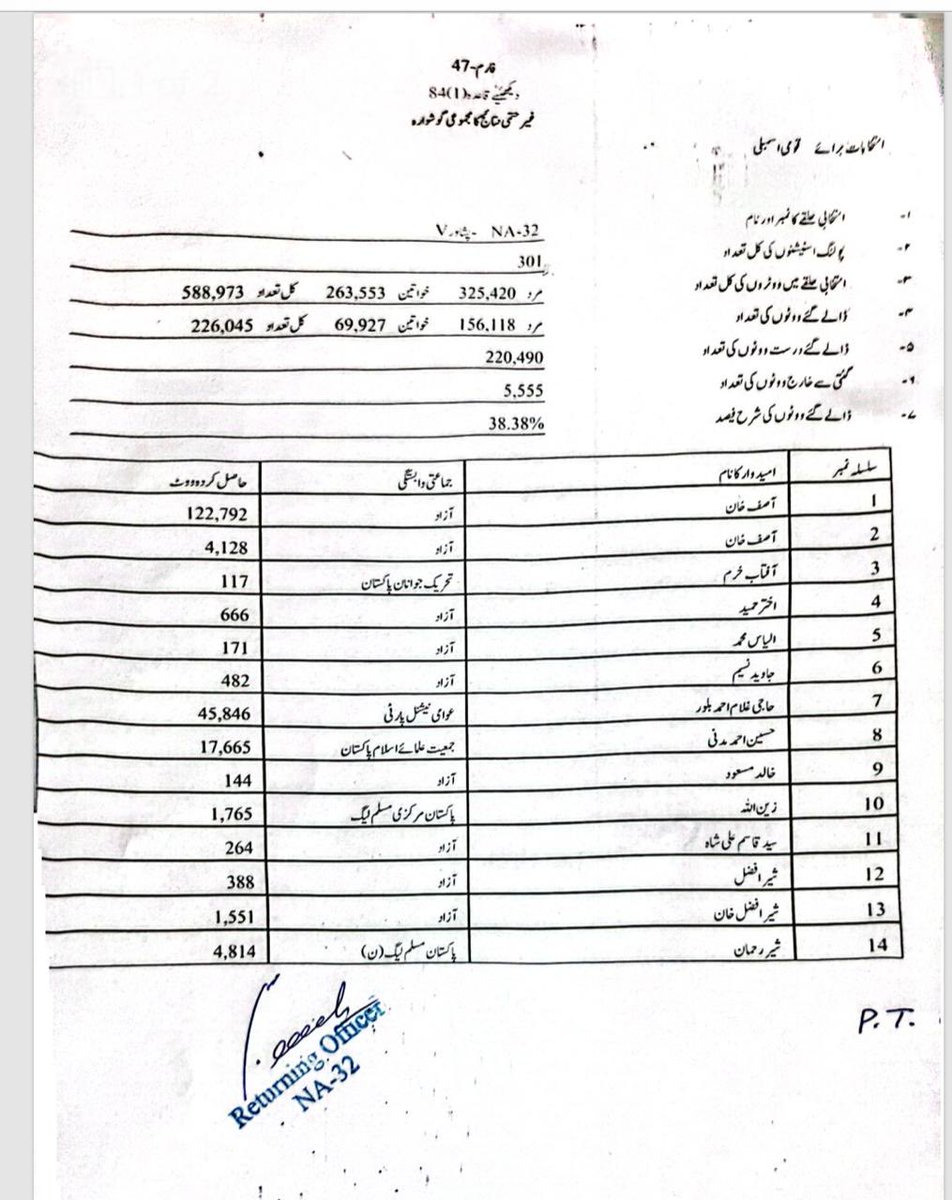 فارم-47
دیکھیئے قاعدہ (1)84
غیر حتمی نتائج کا مجموعی گوشوارہ
انتخابات برائے قومی اسمبلی
۱- انتخابی حلقے کا نمبر اور نام NA-32 -پشاور V
۲- پولنگ اسٹیشنوں کی کل تعداد 301
۳- انتخابی حلقے میں ووٹروں کی کل تعداد مرد 325,420 خواتین 263,553 کل تعداد 588,973
۴- ڈالے گئے ووٹوں کی تعداد مرد 156,118 خواتین 69,927 کل تعداد 226,045
۵- ڈالے گئے درست ووٹوں کی تعداد 220,490
۶- گنتی سے خارج ووٹوں کی تعداد 5,555
۷- ڈالے گئے ووٹوں کی شرح فیصد 38.38%
سلسلہ نمبر امیدوار کا نام جماعتی وابستگی حاصل کردہ ووٹ
1 آصف خان آزاد 122,792
2 آصف خان آزاد 4,128
3 آفتاب خرم تحریک جوانان پاکستان 117
4 اختر حمید آزاد 666
5 الیاس محمد آزاد 171
6 جاوید نسیم آزاد 482
7 حاجی غلام احمد بلور عوامی نیشنل پارٹی 45,846
8 حسین احمد مدنی جمعیت علمائے اسلام پاکستان 17,665
9 خالد مسعود آزاد 144
10 زین اللہ پاکستان مرکزی مسلم لیگ 1,765
11 سید قاسم علی شاہ آزاد 264
12 شیر افضل آزاد 388
13 شیر افضل خان آزاد 1,551
14 شیر رحمان پاکستان مسلم لیگ (ن) 4,814
P.T.
Returning Officer
NA-32